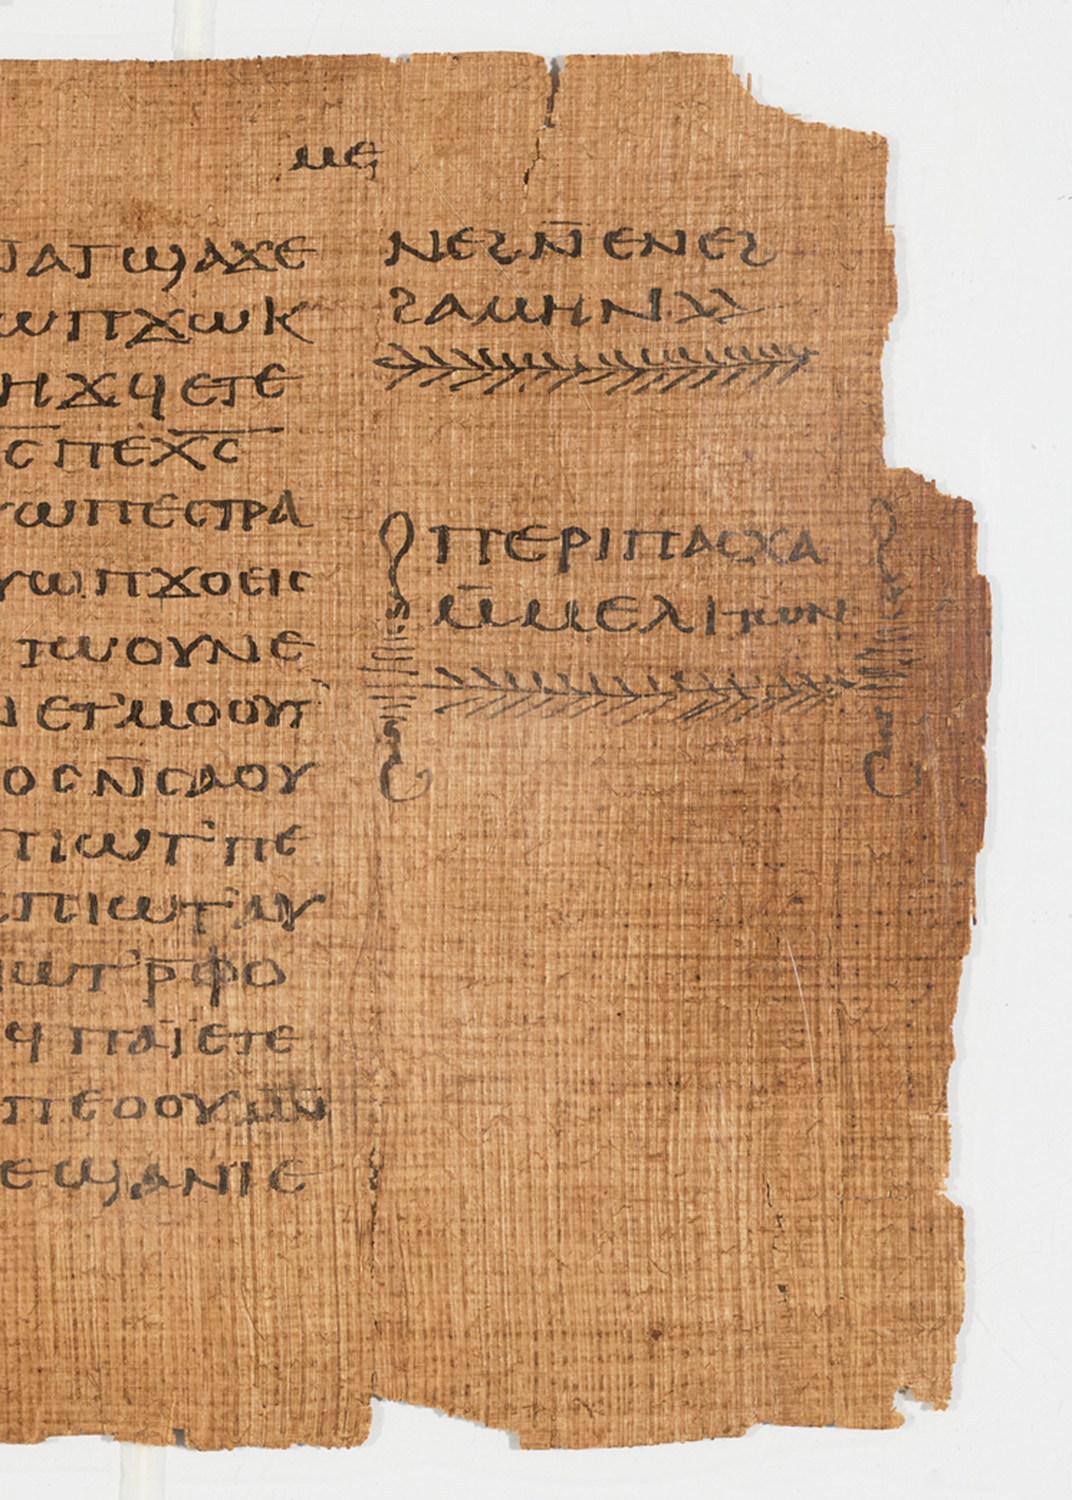 ⲙⲉ
ⲁⲧϣⲁϫⲉ
ⲱⲡϫⲱⲕ
ⲏϫϥⲉⲧⲉ
ⲥ̅ⲡⲉⲭ̅ⲥ̅
ⲱⲡⲉⲥⲧⲣⲁ
ⲩⲱⲡϫⲟⲉⲓⲥ
ⲧⲱⲟⲩⲛⲉ
ⲉⲧ'ⲙⲟⲟⲩⲧ
ⲟⲥⲛ̅ⲥⲙⲟⲩ
ⲧⲓⲱⲧ'ⲡⲉ
ⲡⲓⲱⲧ'ⲁⲩ
ⲓⲱⲧ'ⲣ̅ⲫⲟ
ϥ ⲡⲁⲓ̈ⲉⲧⲉ
ⲡⲉⲟⲟⲩⲙⲛ̅
ⲉϣⲁⲛⲓⲉ
ⲛⲉϩⲛ̅ⲉⲛⲉϩ
ϩⲁⲙⲏⲛ
ⲡⲉⲣⲓⲡⲁⲥⲭⲁ
ⲙ̅ⲙⲉⲗⲓⲧⲱⲛ